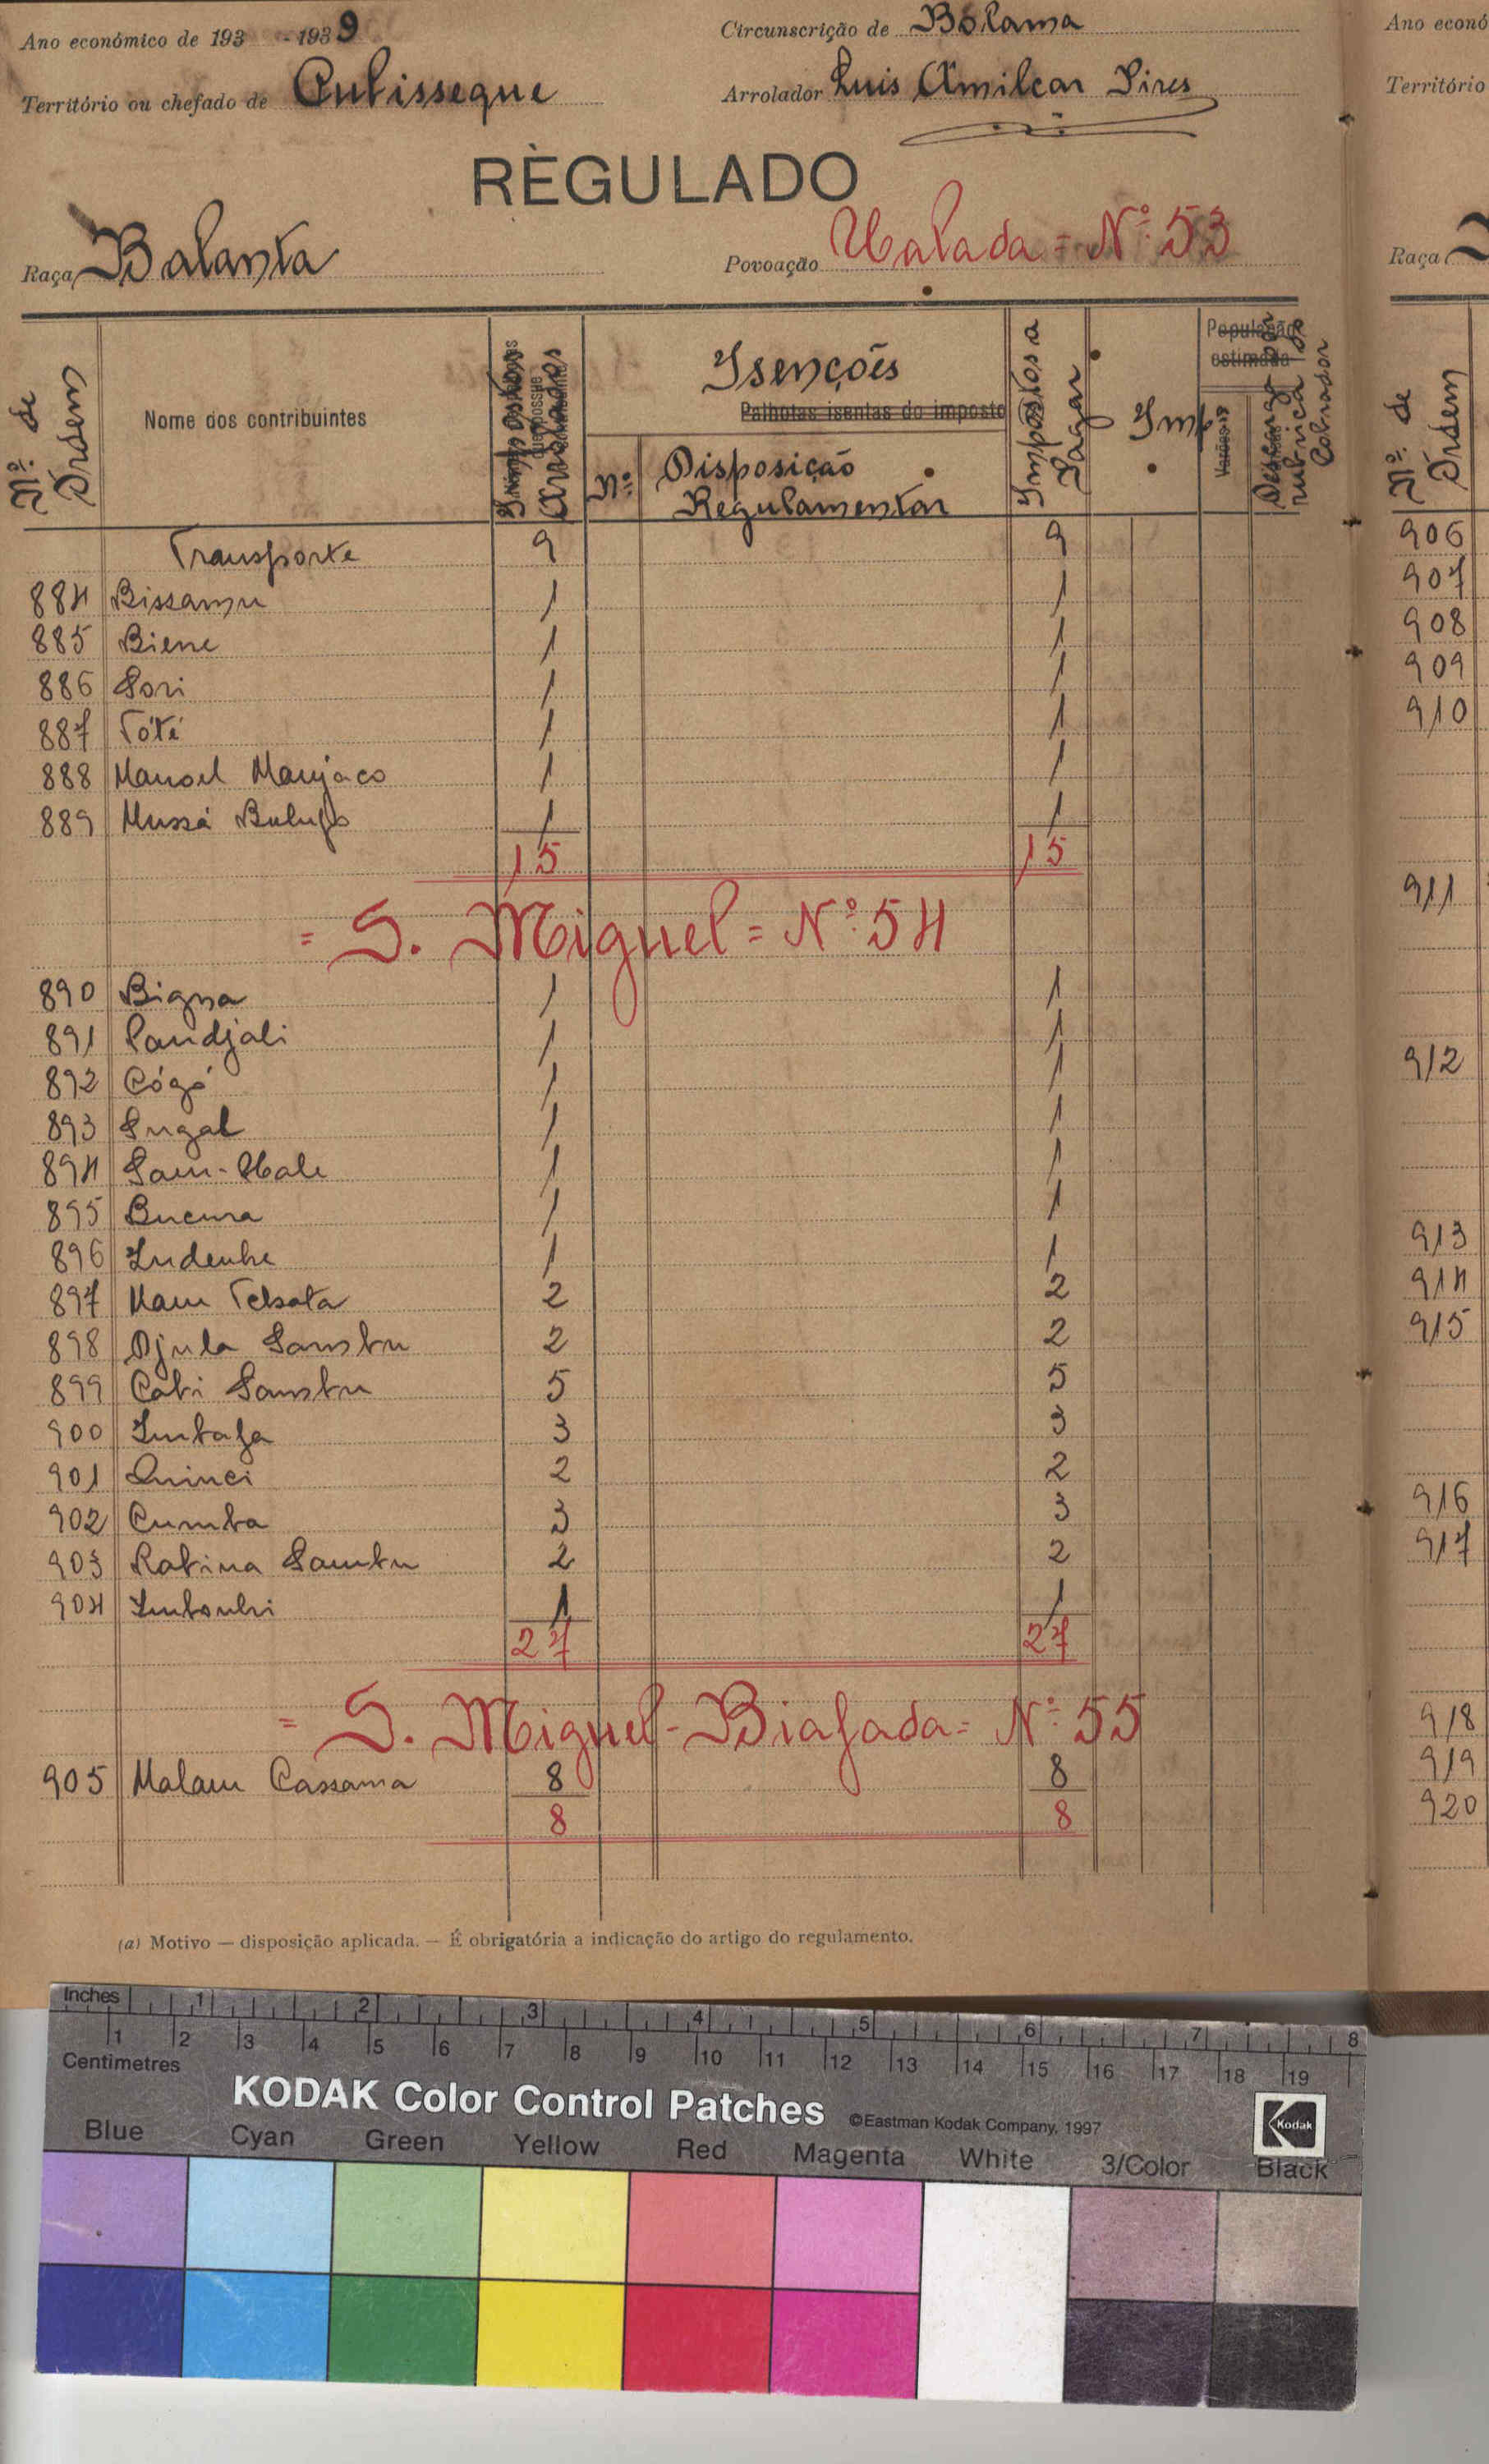 Ano económico de 193 - 1939
Circunscrição de Bolama
Território ou chefado de Cubisseque
Arrolador Luis Amilcar Pires
RÈGULADO
Raça Balanta
Povoação Ualada = Nº 53
Nº de Ordem
Nome dos contribuintes
Impostos Arrolados
Isenções
Palhotas isentas do imposto
Nº
Disposição Regulamentar
Impostos a Pagar
Imp.
População estimada
Varões
Descarga por rubrica do Cobrador
Transporte 9 9
884 Bissamu 1 1
885 Biene 1 1
886 Sori 1 1
887 Tóté 1 1
888 Manoel Manjaco 1 1
889 Mussá Bulufo 1 1
15 15
= S. Miguel = Nº 54
890 Bigna 1 1
891 Pandjali 1 1
892 Cógó 1 1
893 Sugal 1 1
894 1 1
895 Bucura 1 1
896 Indenhe 1 1
897 2 2
898 Djula Sambu 2 2
899 Cabi Sambu 5 5
900 Imbafa 3 3
901 Quinci 2 2
902 Cumba 3 3
903 Rabina Sambu 2 2
904 1 1
27 27
= S. Miguel - Biafada = Nº 55
905 Malam Cassama 8 8
8 8
(a) Motivo — disposição aplicada. — É obrigatória a indicação do artigo do regulamento.
Ano econó
Território
Raça
Nº de Ordem
906
907
908
909
910
911
912
913
914
915
916
917
918
919
920
Inches 1 2 3 4 5 6 7 8
1 2 3 4 5 6 7 8 9 10 11 12 13 14 15 16 17 18 19
Centimetres
KODAK Color Control Patches ©Eastman Kodak Company, 1997
Kodak
Blue Cyan Green Yellow Red Magenta White 3/Color Black